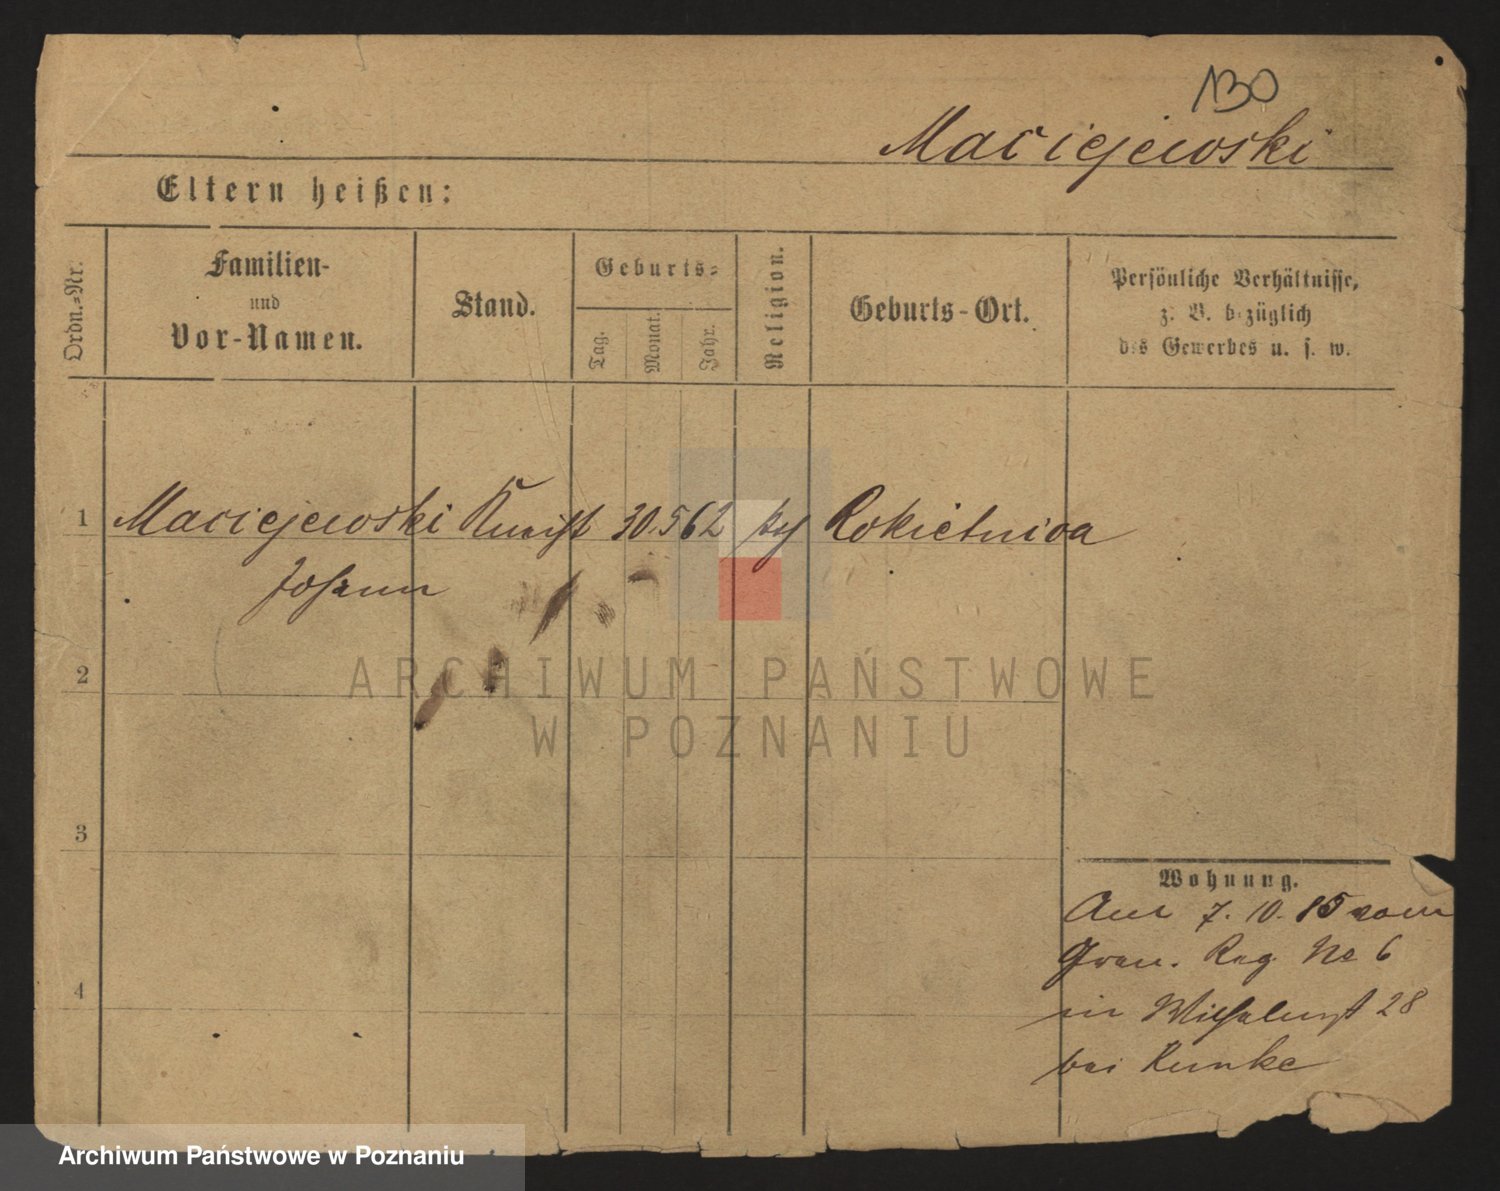 130
Maciejewski
Eltern heißen:
Ordn.-Nr.
Familien-
und
Vor-Namen.
Stand.
Geburts-
Tag.
Monat.
Jahr.
Religion.
Geburts-Ort.
Persönliche Verhältnisse,
z. B. bezüglich
des Gewerbes u. s. w.
1 Maciejewski 30. 5 62 Rokietnica
Johann
2
ARCHIWUM PAŃSTWOWE
W POZNANIU
3
4
Wohnung.
Am 7. 10. 85 vom
Gren. Reg No 6
in Wilhelmst 28
bei Runke
Archiwum Państwowe w Poznaniu